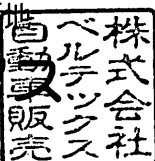 株式会社
ベルテックス
自動車販売